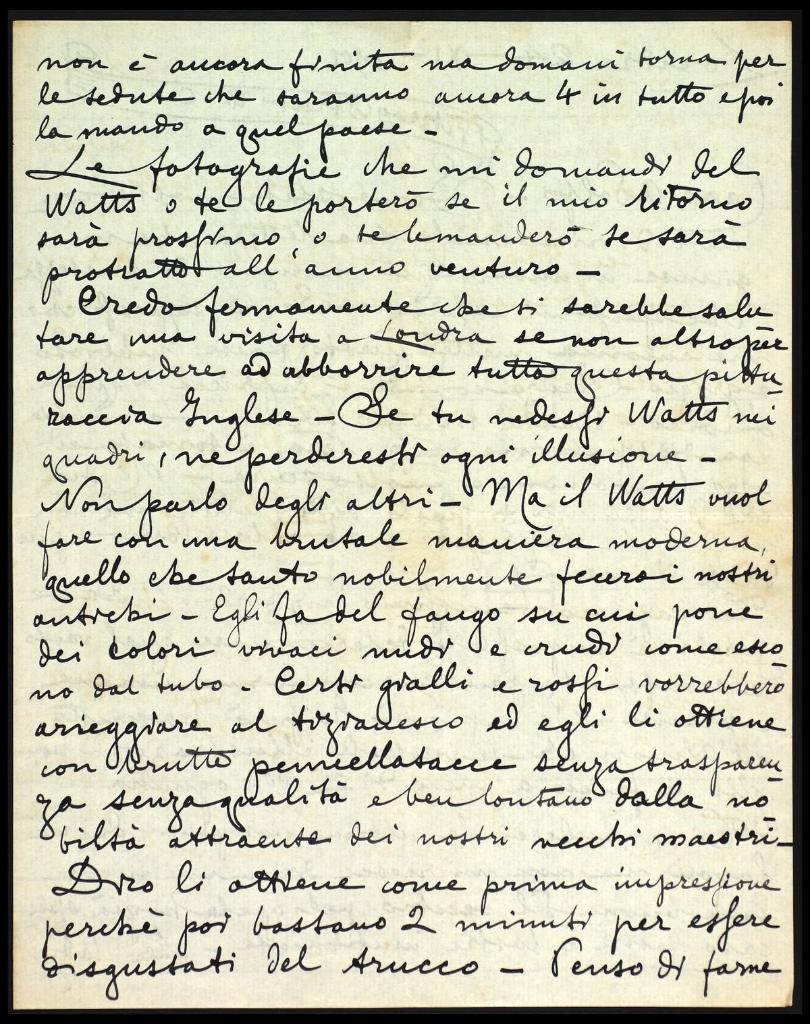 non è ancora finita ma domani torna per
le sedute che saranno ancora 4 in tutto e poi
la mando a quel paese -
Le fotografie che mi domandi del
Watts o te le porterò se il mio ritorno
sarà prossimo o te le manderò se sarà
protratto all'anno venturo -
Credo fermamente che ti sarebbe salu
tare una visita a Londra se non altro per
apprendere ad abborrire tutta questa pittu
raccia Inglese - Se tu vedessi Watts nei
quadri, ne perderesti ogni illusione -
Non parlo degli altri - Ma il Watts vuol
fare con una brutale maniera moderna,
quello che tanto nobilmente fecero i nostri
antichi - Egli fa del fango su cui pone
dei colori vivaci nudi e crudi come esco
no dal tubo - Certi gialli e rossi vorrebbero
arieggiare al tizianesco ed egli li ottiene
con brutte pennellatacce senza trasparen
za senza qualità e ben lontano dalla no
biltà attraente dei nostri vecchi maestri -
Dico li ottiene come prima impressione
perchè poi bastano 2 minuti per essere
disgustati del trucco - Penso di farne